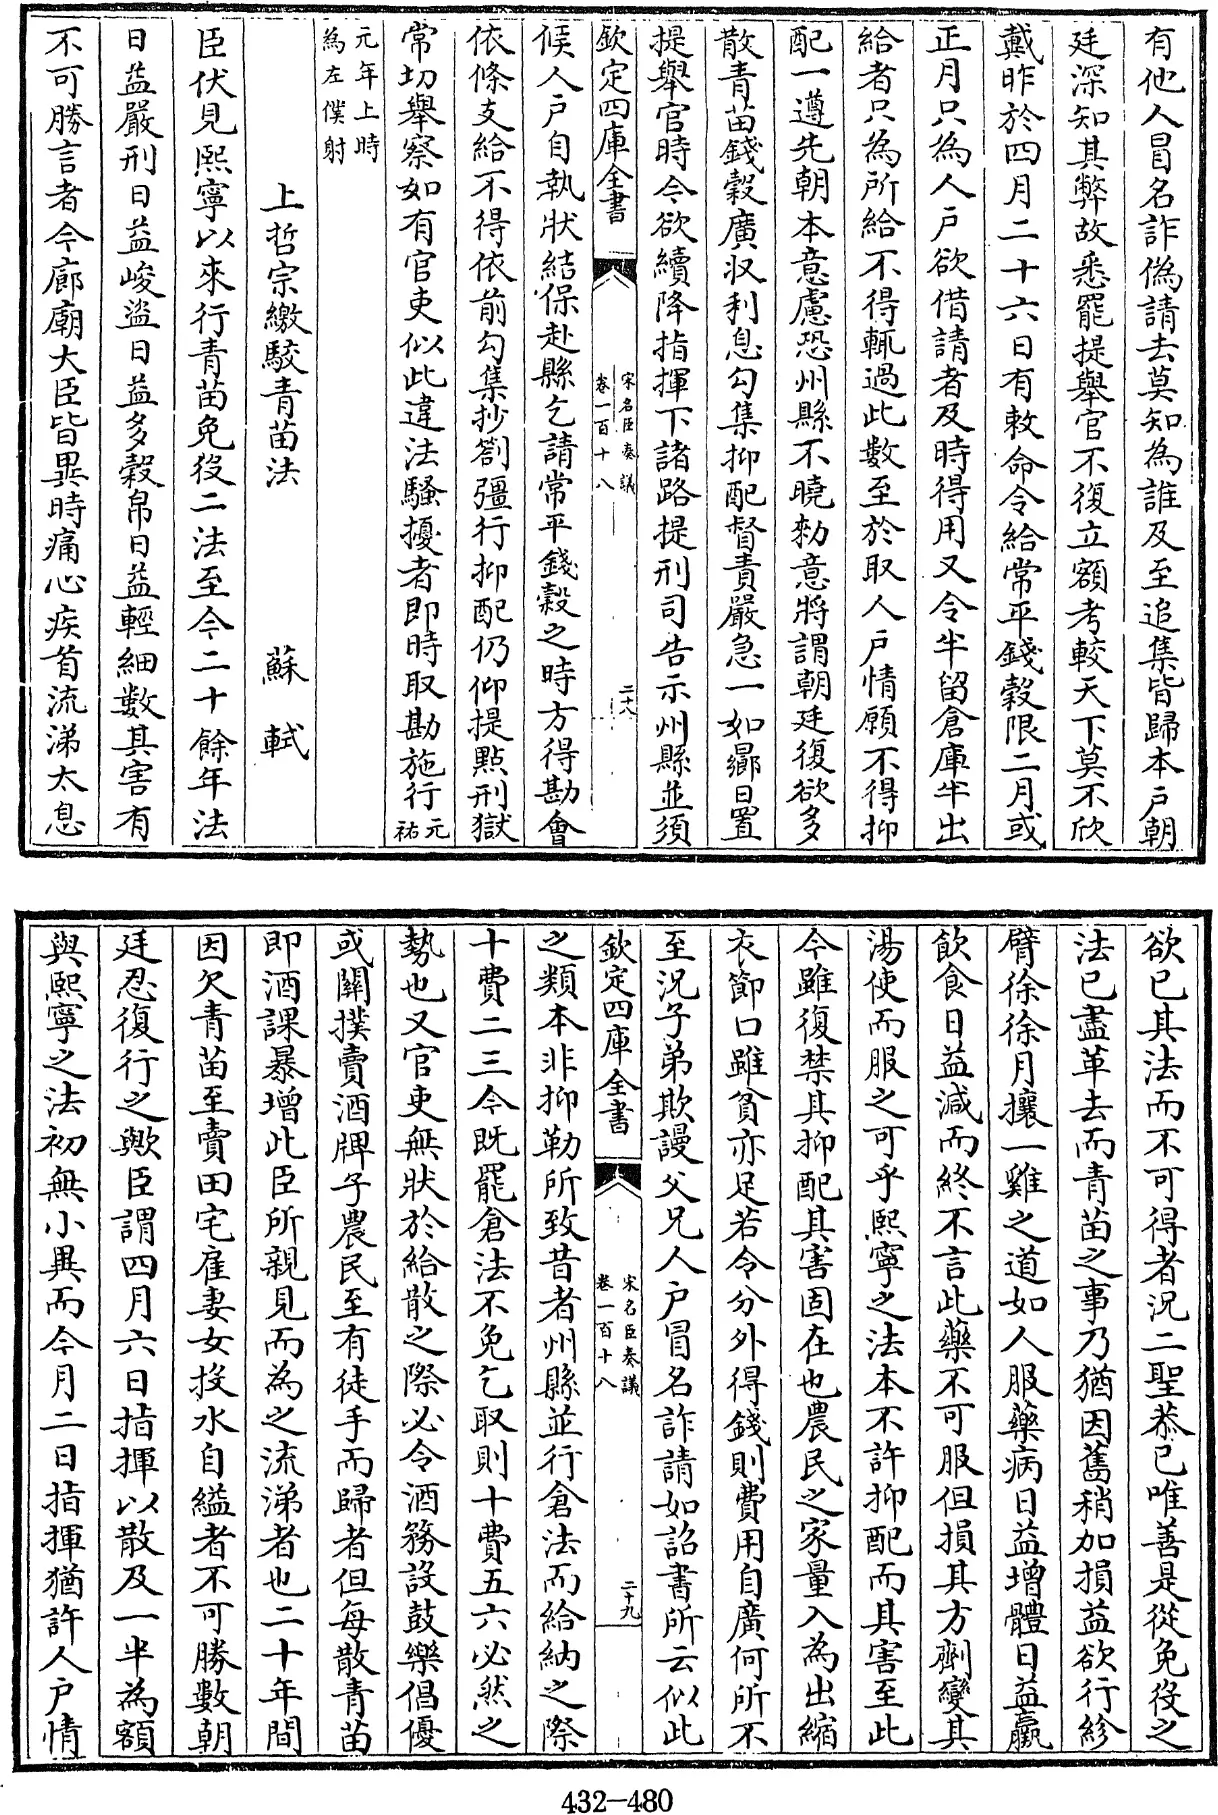 有他人冒名詐偽請去莫知為誰及至追集皆歸本戶朝
廷深知其弊故悉罷提舉官不復立額考較天下莫不欣
戴昨於四月二十六日有敕命令給常平錢穀限二月或
正月只為人戶欲借請者及時得用又令半留倉庫半出
給者只為所給不得輒過此數至於取人戶情願不得抑
配一遵先朝本意慮恐州縣不曉勑意將謂朝廷復欲多
散青苗錢穀廣收利息勾集抑配督責嚴急一如曏日置
提舉官時今欲續降指揮下諸路提刑司告示州縣並須
欽定四庫全書
宋名臣奏議
卷一百十八
二十八
候人戶自執狀結保赴縣乞請常平錢穀之時方得勘會
依條支給不得依前勾集抄劄彊行抑配仍仰提點刑獄
常切舉察如有官吏似此違法騷擾者即時取勘施行元祐
元年上時
為左僕射
上哲宗繳駮青苗法 蘇軾
臣伏見熙寧以來行青苗免役二法至今二十餘年法
日益嚴刑日益峻盜日益多穀帛日益輕細數其害有
不可勝言者今廊廟大臣皆異時痛心疾首流涕太息
欲已其法而不可得者況二聖恭已唯善是從免役之
法已盡革去而青苗之事乃猶因舊稍加損益欲行紾
臂徐徐月攘一雞之道如人服藥病日益增體日益羸
飲食日益減而終不言此藥不可服但損其方劑變其
湯使而服之可乎熙寧之法本不許抑配而其害至此
今雖復禁其抑配其害固在也農民之家量入為出縮
衣節口雖貧亦足若令分外得錢則費用自廣何所不
至況子弟欺謾父兄人戶冒名詐請如詔書所云似此
欽定四庫全書
宋名臣奏議
卷一百十八
二十九
之類本非抑勒所致昔者州縣並行倉法而給納之際
十費二三今既罷倉法不免乞取則十費五六必然之
勢也又官吏無狀於給散之際必令酒務設鼓樂倡優
或關撲賣酒牌子農民至有徒手而歸者但每散青苗
即酒課暴增此臣所親見而為之流涕者也二十年間
因欠青苗至賣田宅雇妻女投水自縊者不可勝數朝
廷忍復行之歟臣謂四月六日指揮以散及一半為額
與熙寧之法初無小異而今月二日指揮猶許人戶情
432—480